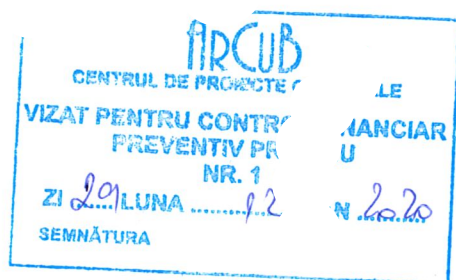 ARCUB
CENTRUL DE PROIECTE
VIZAT PENTRU
PREVENTIV
NR. 1
ZI 29 LUNA ........12 N 2020
SEMNĂTURA